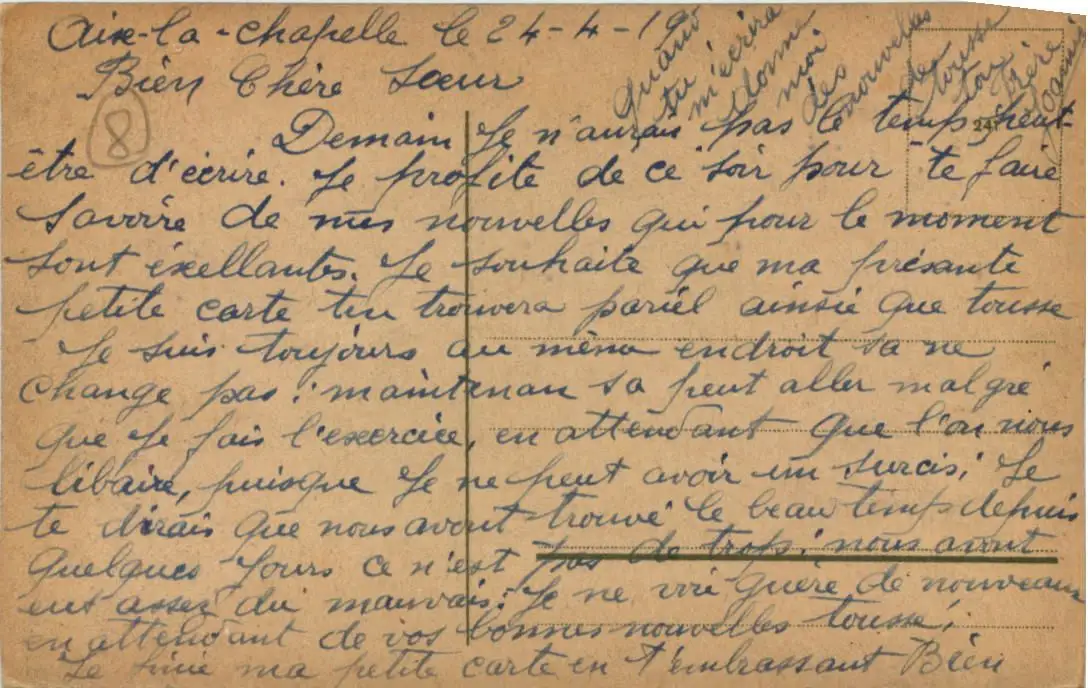 Aix-la-chapelle le 24-4-19
Bien Chère Sœur
8
Demain Je n'aurai pas le temp peut-
être d'écrire. Je profite de ce soir pour te faire
savoire de mes nouvelles qui pour le moment
sont éxellantes. Je souhaite que ma présante
petite carte tu trouvera pariel ainsie que tousse
Je suis toujours au même endroit sa ne
change pas; maintenan sa peut aller malgré
que Je fais l'exercice, en attendant que l'on nous
libaire, puisque Je ne peut avoir un surcis; Je
te dirais que nous avont trouvé le beau temps depuis
quelques Jours ce n'est pas de trop; nous avont
eut assez du mauvais; Je ne voi guère de nouveaux
en attendant de vos bonnes nouvelles tousse,
Je finie ma petite carte en t'embrassant Bien
Quand
tu
m'écrira
donne
moi
des
nouvelles
de
tousse
ton
frère
241